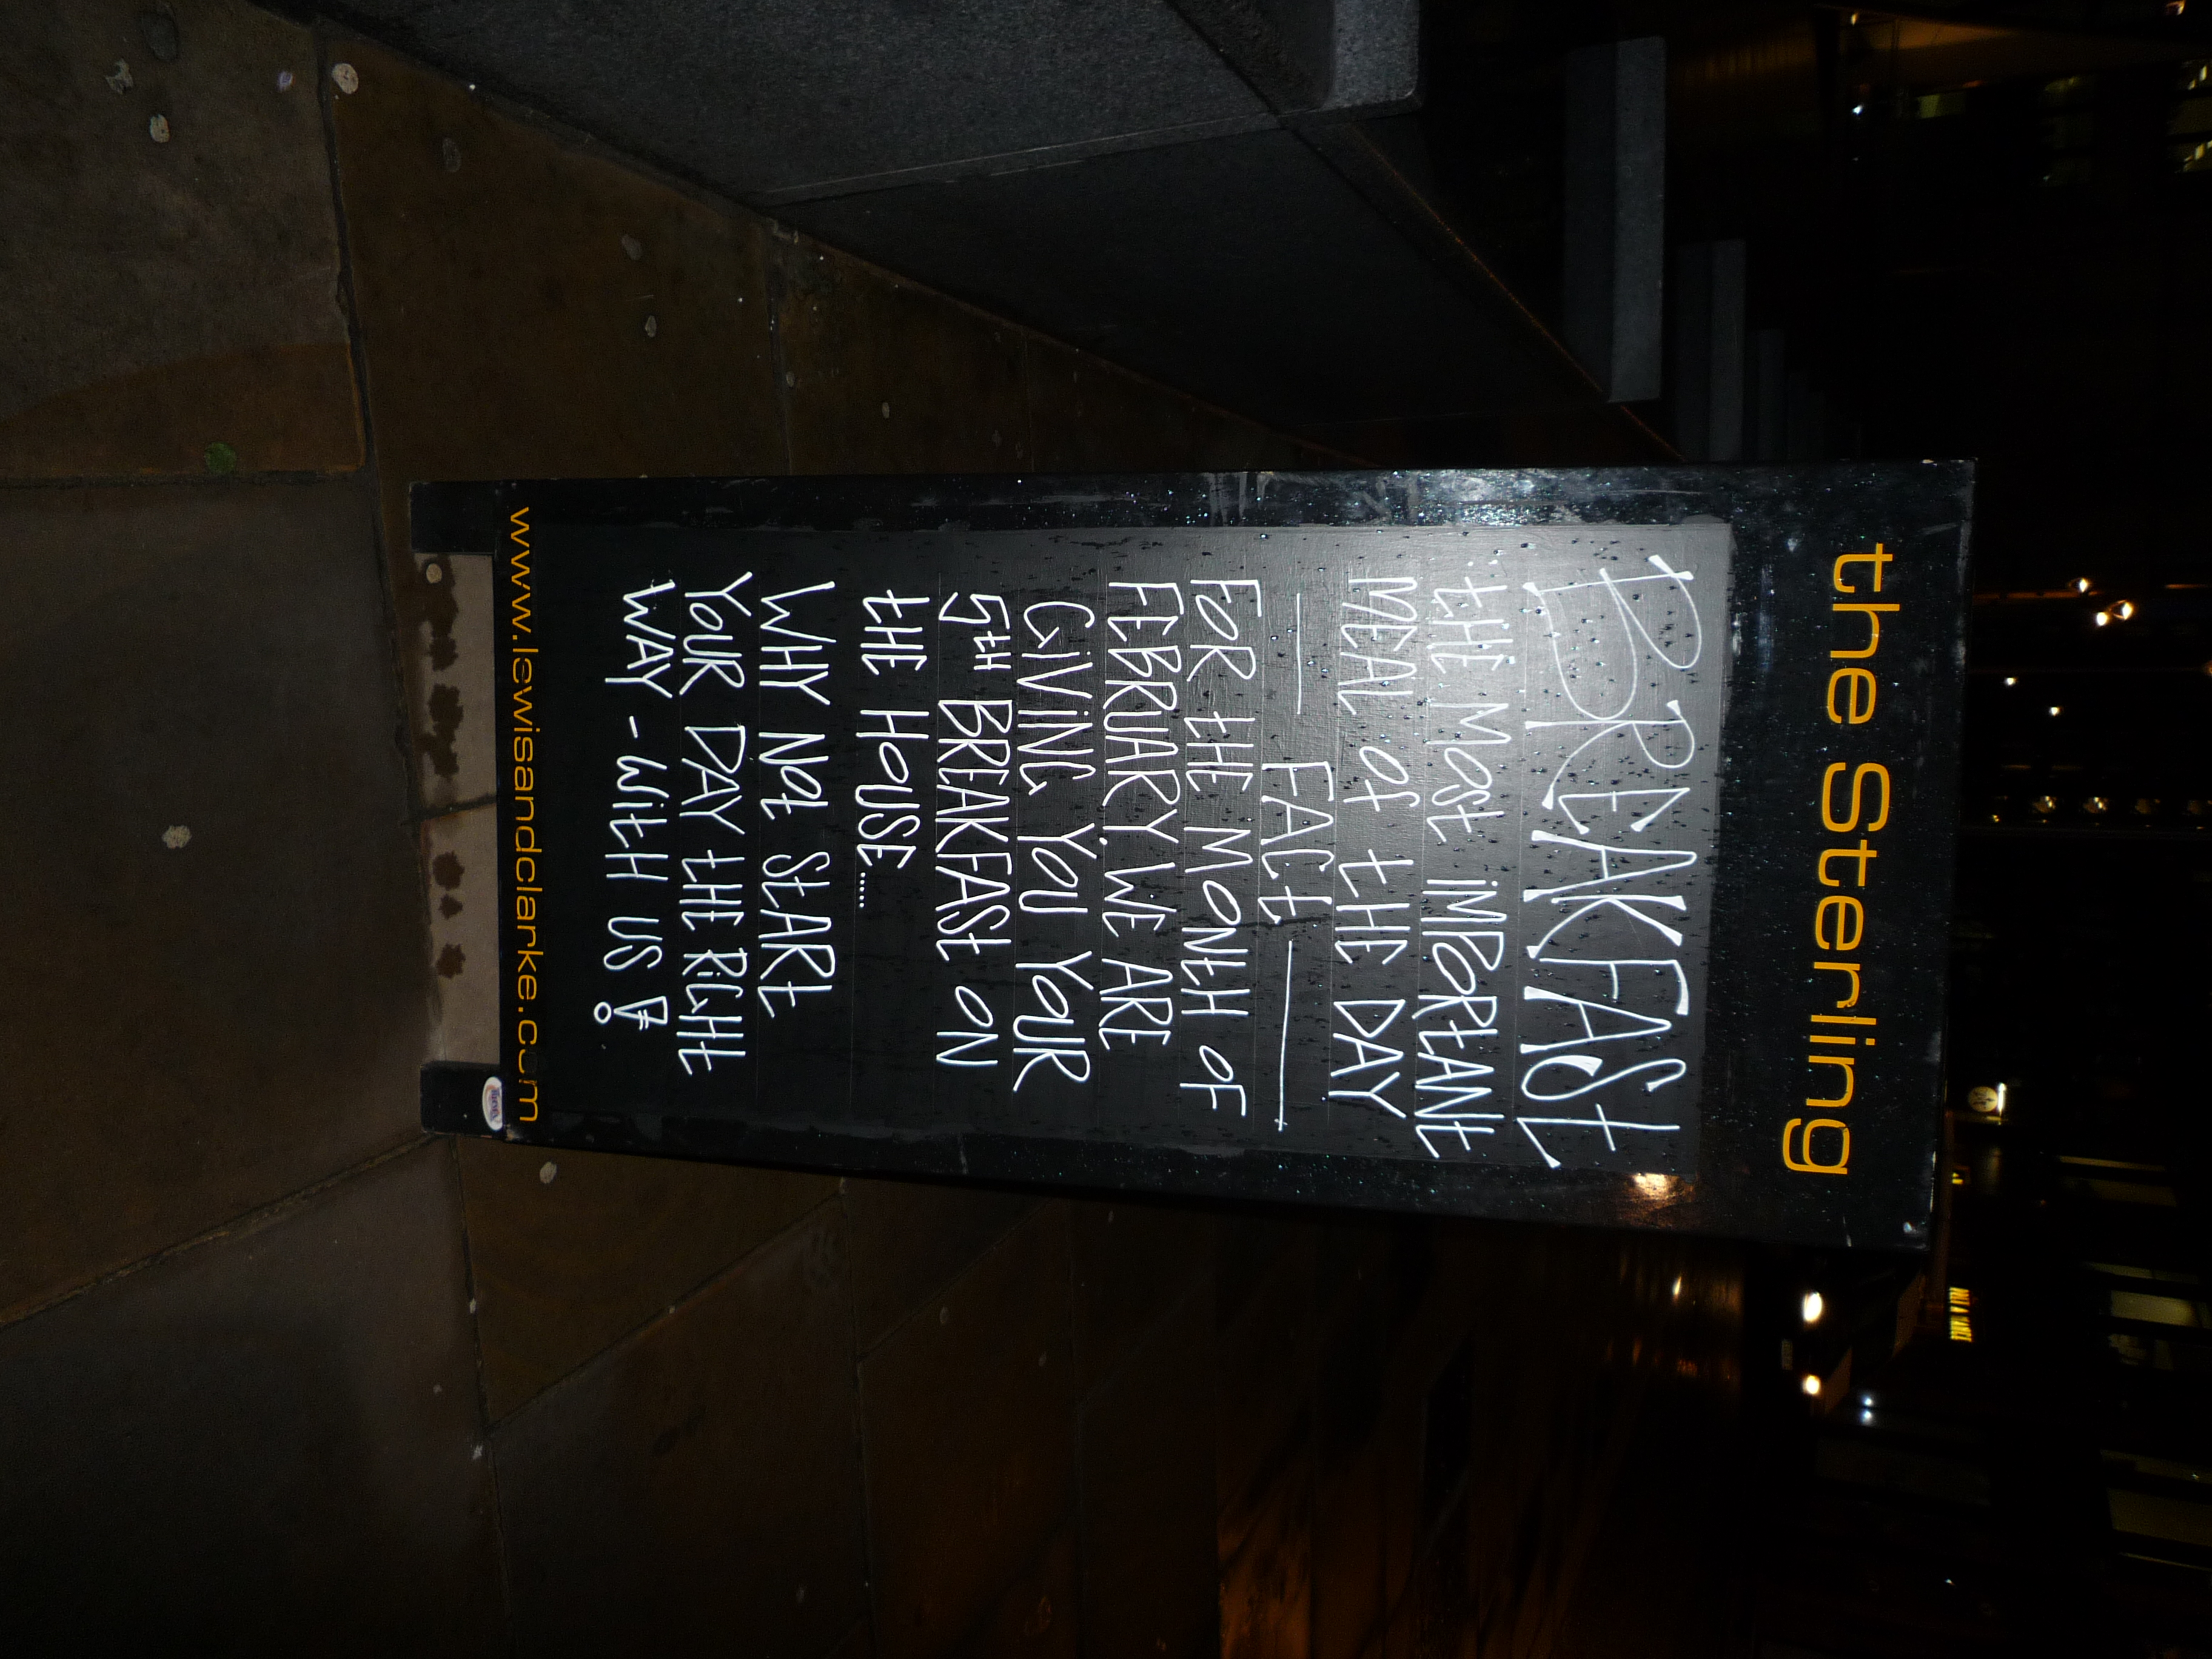 the Sterling
BREAKFAST
THE MOST IMPORTANT
MEAL OF THE DAY
— FACT —
FOR THE MONTH OF
FEBRUARY. WE ARE
GIVING YOU YOUR
5TH BREAKFAST ON
THE HOUSE.....
WHY NOT START
YOUR DAY THE RIGHT
WAY - WITH US !
www.lewisandclarke.com